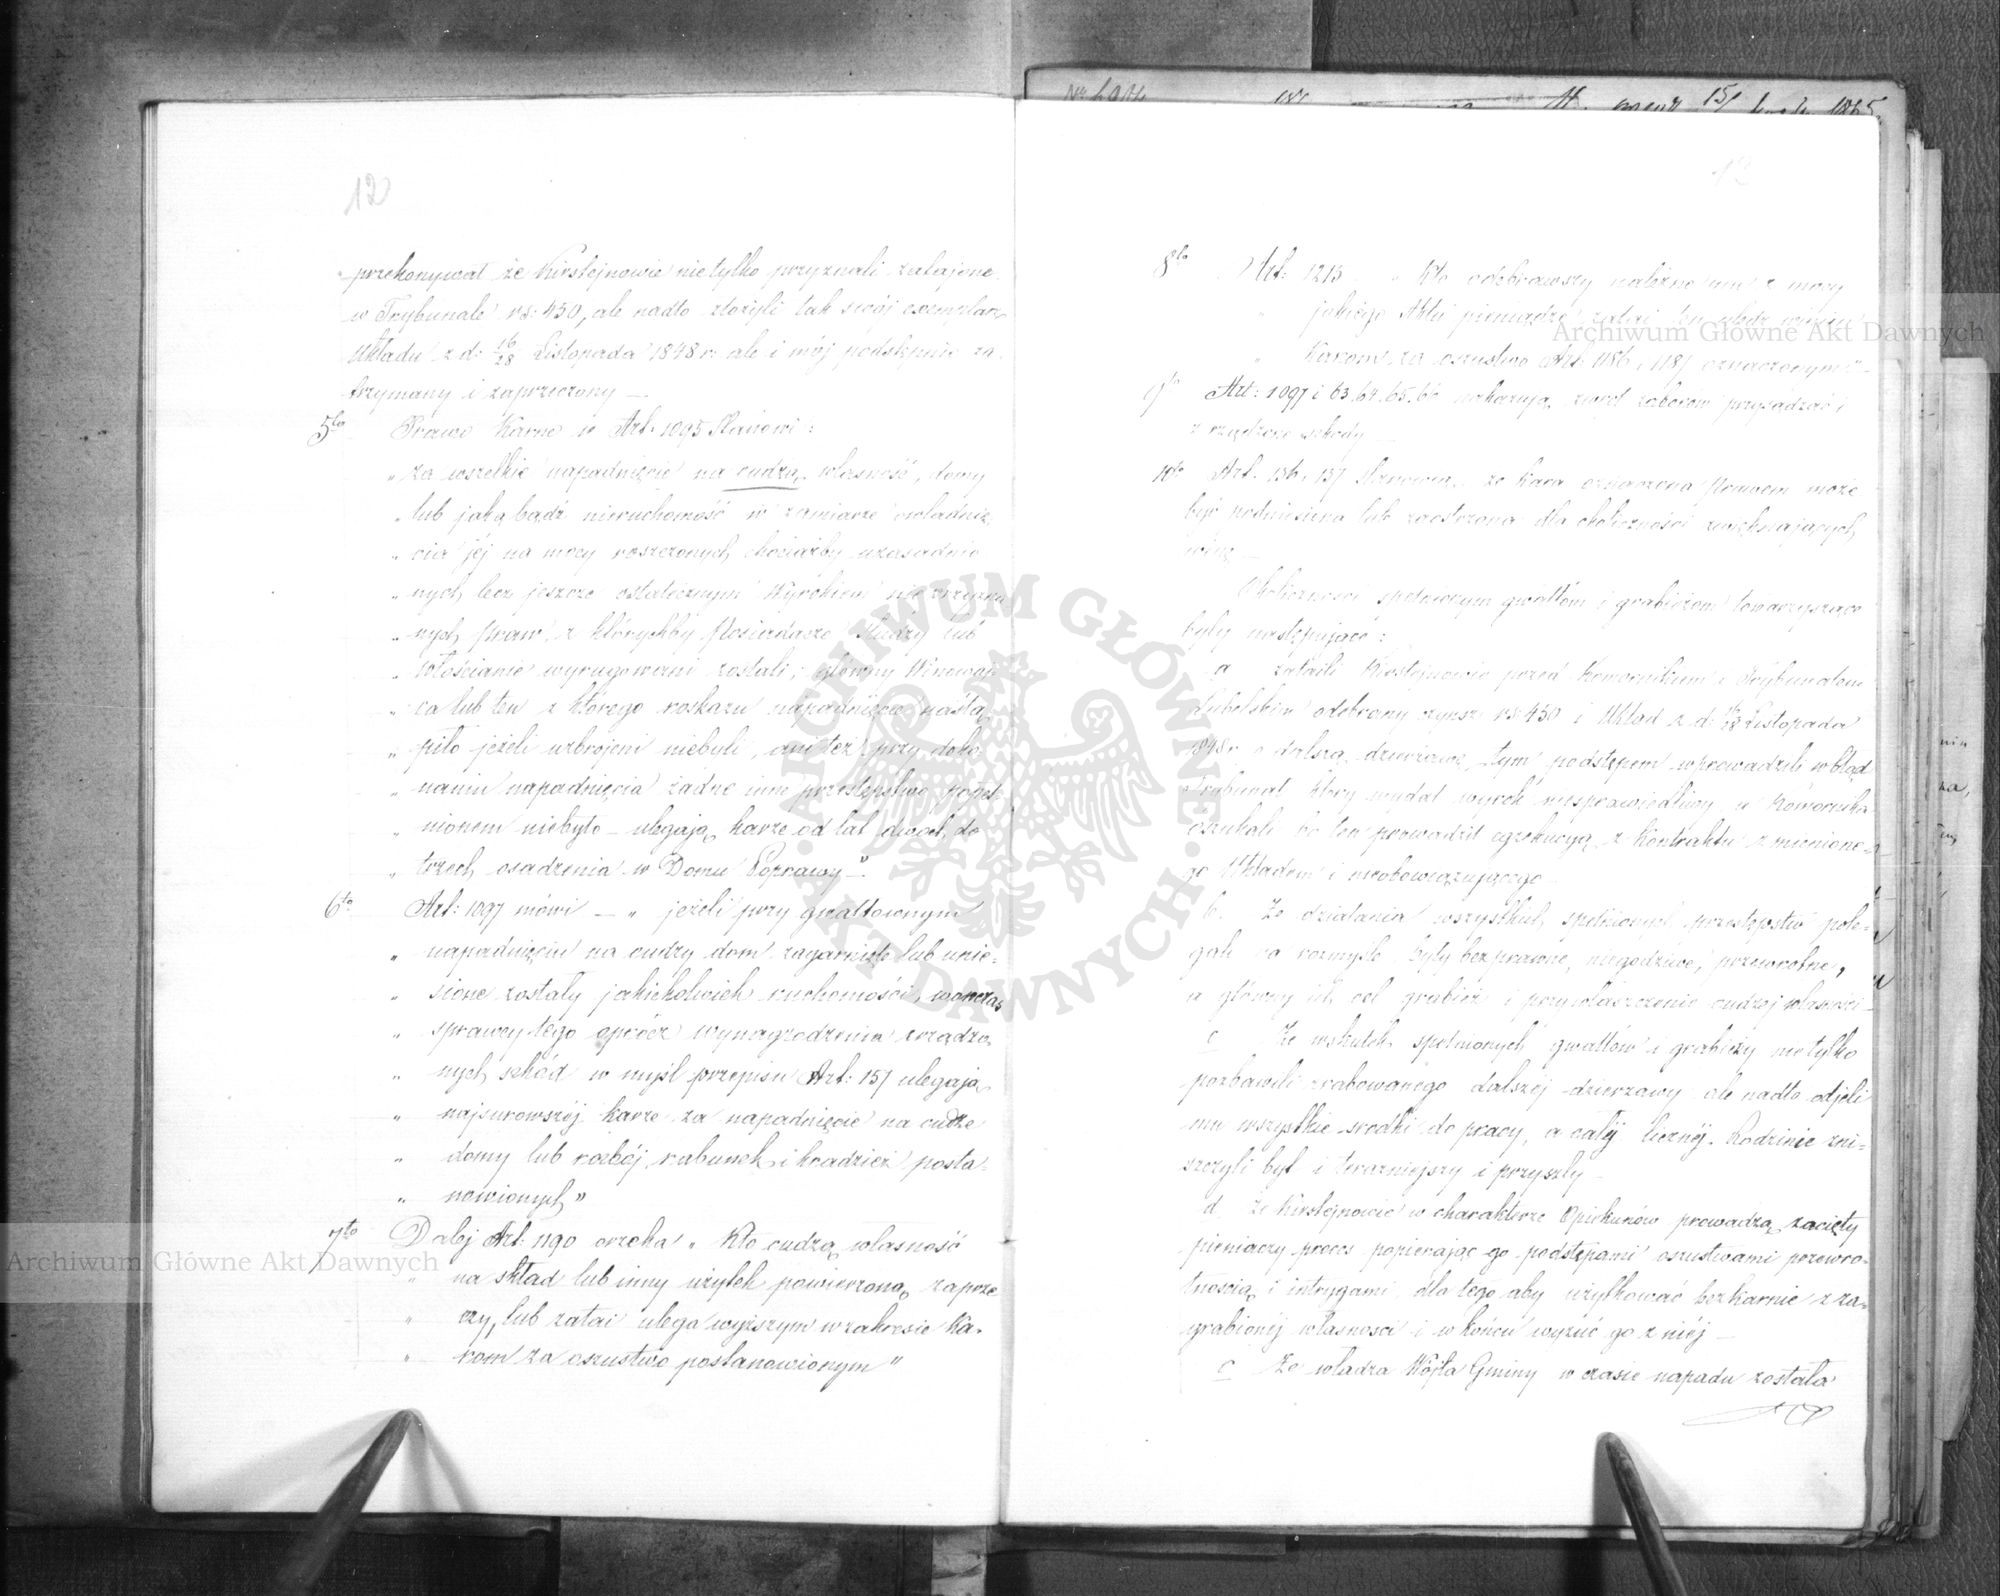 12
przekonywał że Kirstejnowie nietylko przyznali zatajone
w Trybunale rs: 450, ale nadto złożyli tak swój exemplarz
Układu z d: 16/28 Listopada 1848 r: ale i mój podstępnie za-
trzymany i zaprzeczony —
5to Prawo Karne w Art: 1095 Stanowi:
„ za wszelkie napadnięcie na cudzą własność, domy
„ lub jaką bądź nieruchomość w zamiarze owładnię
„ cia jéj na mocy roszczonych chociażby uzasadnio
„ nych lecz jeszcze ostatecznym Wyrokiem nieprzyzna
„ nych praw, z którychby Posiadacze Słudzy lub
„ włościanie wyrugowani zostali; główny Winowaj
„ ca lub ten z którego roskazu napadnięcie nastą
„ piło jeżeli uzbrojeni niebyli, ani też przy doko
„ naniu napadnięcia żadne inne przestępstwo popeł
„ nionem niebyło — ulegają karze od lat dwóch do
„ trzech osadzenia w Domu Poprawy —"
6to Art: 1097 mówi — „ jeżeli przy gwałtownym
„ napadnięciu na cudzy dom zagarnięte lub unie-
„ sione zostały jakiekolwiek ruchomości, wówczas
„ sprawcy tego oprócz wynagrodzenia zrządzo
„ nych szkód w myśl przepisu Art: 157 ulegają
„ najsurowszéj karze za napadnięcie na cudze
„ domy lub rozbój, rabunek, i kradzież posta-
„ nowionych"
7to Daléj Art: 1190 orzeka „ Kto cudzą własność
„ na skład lub inny użytek powierzoną, zaprze
„ czy, lub zatai ulega wyższym w zakresie Ka-
„ rom za oszustwo postanowionym"
8to Art: 1213 „ Kto odebrawszy należne mu z mocy
„ jakiego Aktu pieniądze zatai ten ulega
„ Karom za oszustwo Art: 1186 i 1187 oznaczonym"
9to Art: 1097 i 63. 64. 65. 66 nakazują zwrot zaborów przysądzać i
zrządzone szkody —
10to Art. 136. 137 Stanowią, że kara oznaczona Prawem może
być podniesiona lub zaostrzona dla okoliczności zwiększających
winę —
Okoliczności spełnionym gwałtom i grabieżom towarzyszące
były następujące:
a zataili Kirstejnowie przed Komornikiem i Trybunałem
Lubelskim odebrany czynsz rs: 450 i Układ z d: 16/28 Listopada
1848 r. o dalszą dzierżawę, tym podstępem wprowadzili w błąd
Trybunał który wydał wyrok niesprawiedliwy, a Komornika
oszukali bo ten prowadził egzekucyą z Kontraktu zmienione-
go Układem i nieobowiązującego —
b. Że działania wszystkich spełnionych przestępstw pole-
gały na rozmyśle, były bezprawne, niegodziwe, przewrotne,
a główny ich cel grabież i przywłaszczenie cudzej własności —
c Że wskutek spełnionych gwałtów i grabieży nietylko
pozbawili zrabowanego dalszéj dzierżawy ale nadto odjęli
mu wszystkie srodki do pracy, a całéj licznéj Rodzinie zni-
szczyli był i teraźniejszy i przyszły —
d Że Kirstejnowie w charakterze Opiekunów prowadzą zacięty
pieniaczy proces popierając go podstępami oszustwami przewro-
tnością i intrygami, dla tego aby użytkować bezkarnie z za-
grabionéj własności i w końcu wyzuć go z niéj —
e Że władza Wójta Gminy w czasie napadu została
Archiwum Główne Akt Dawnych
Archiwum Główne Akt Dawnych
ARCHIWUM GŁÓWNE AKT DAWNYCH